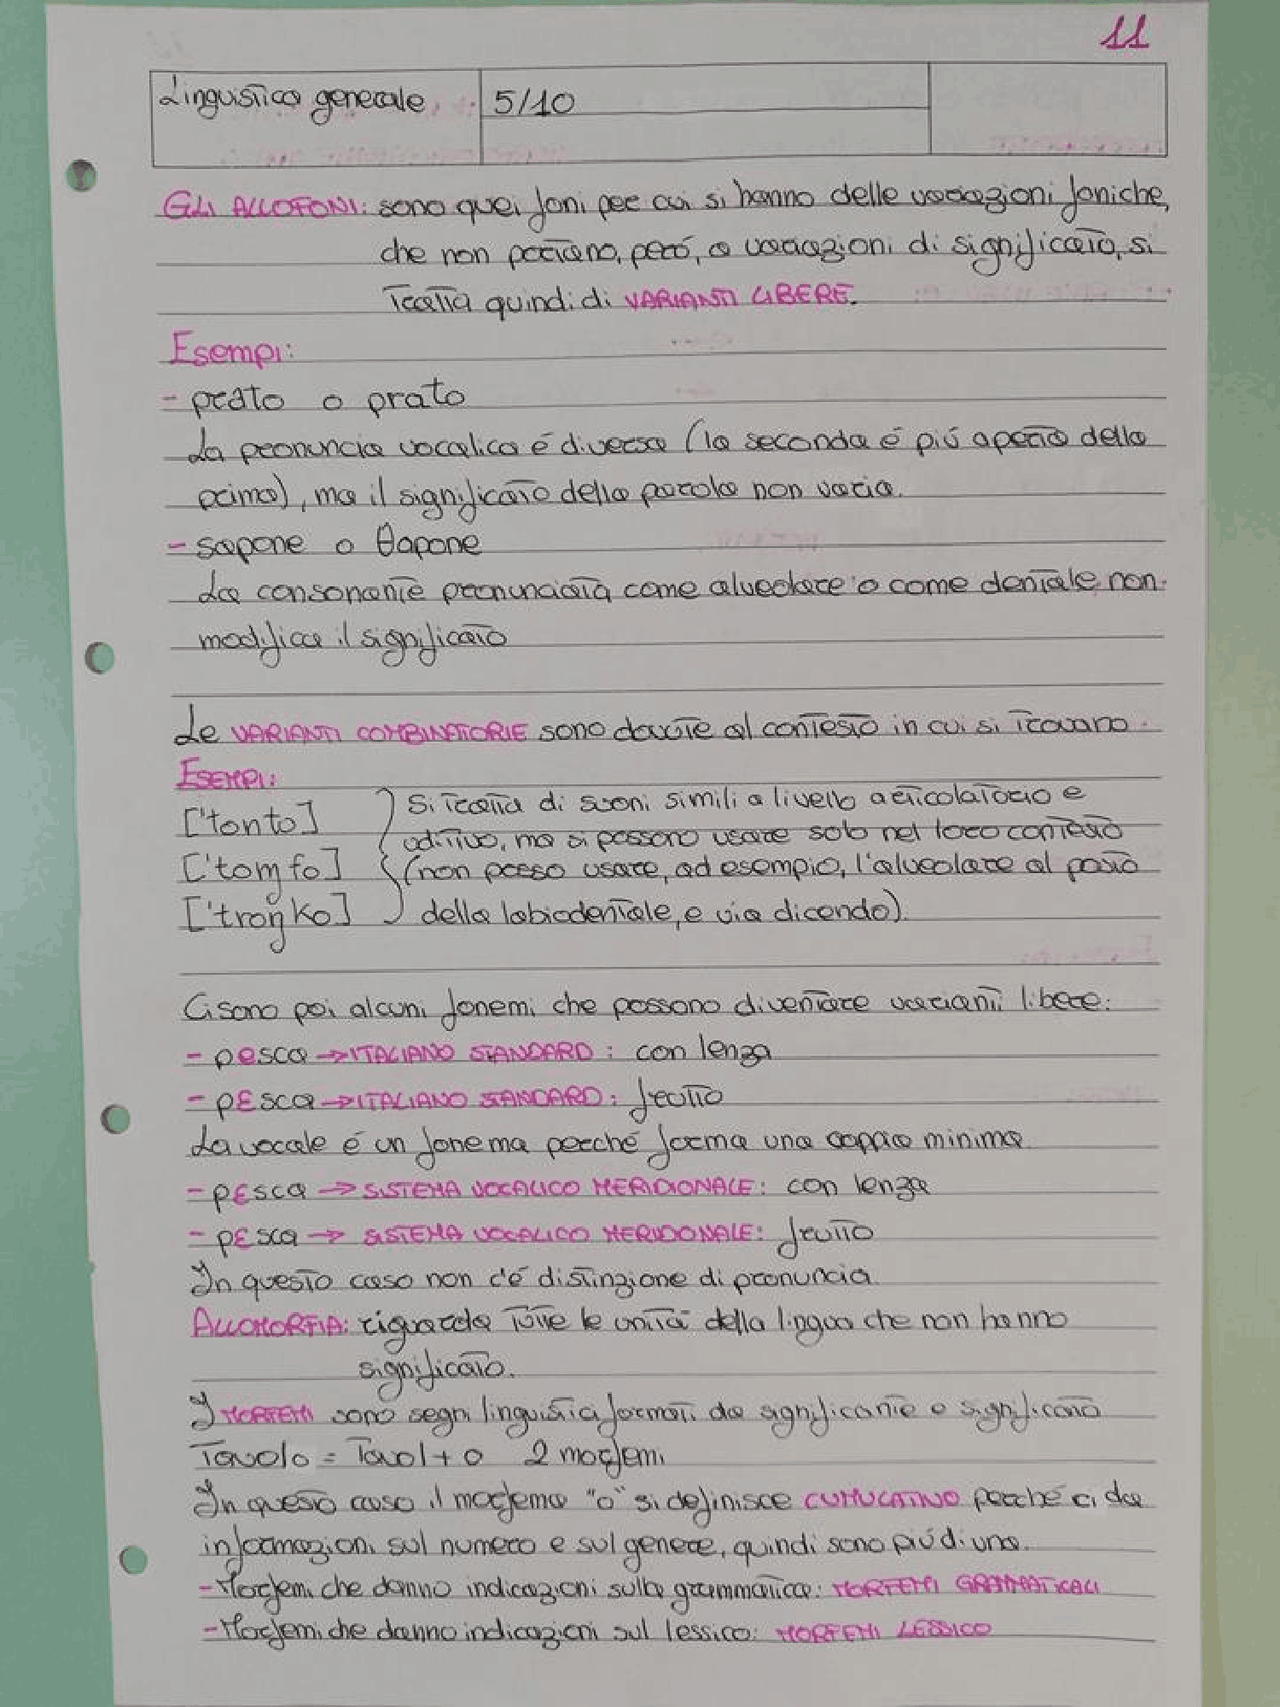 11
Linguistica generale 5/10
GLI ALLOFONI: sono quei foni per cui si hanno delle variazioni foniche,
che non portano, peró, a variazioni di significato, si
tratta quindi di VARIANTI LIBERE.
Esempi:
- prato o prato
La pronuncia vocalica é diversa (la seconda é piú aperta della
prima), ma il significato della parola non varia.
- sapone o θapone
La consonante pronunciata come alveolare o come dentale non
modifica il significato
Le VARIANTI COMBINATORIE sono dovute al contesto in cui si trovano.
ESEMPI:
['tonto] Si tratta di suoni simili a livello articolatorio e
uditivo, ma si possono usare solo nel loro contesto
['toɱfo] (non posso usare, ad esempio, l'alveolare al posto
['troŋko] della labiodentale, e via dicendo).
Ci sono poi alcuni fonemi che possono diventare varianti libere:
- pesca → ITALIANO STANDARD: con lenza
- pɛsca → ITALIANO STANDARD: frutto
La vocale é un fonema perché forma una coppia minima
- pɛsca → SISTEMA VOCALICO MERIDIONALE: con lenza
- pɛsca → SISTEMA VOCALICO MERIDIONALE: frutto
In questo caso non c'é distinzione di pronuncia
ALLOMORFIA: riguarda tutte le unitá della lingua che non hanno
significato.
I MORFEMI sono segni linguistici formati da significante e significato
Tavolo = Tavol + o 2 morfemi
In questo caso il morfema "o" si definisce CUMULATIVO perché ci da
informazioni sul numero e sul genere, quindi sono piú di una.
- Morfemi che danno indicazioni sulla grammatica: MORFEMI GRAMMATICALI
- Morfemi che danno indicazioni sul lessico: MORFEMI LESSICO